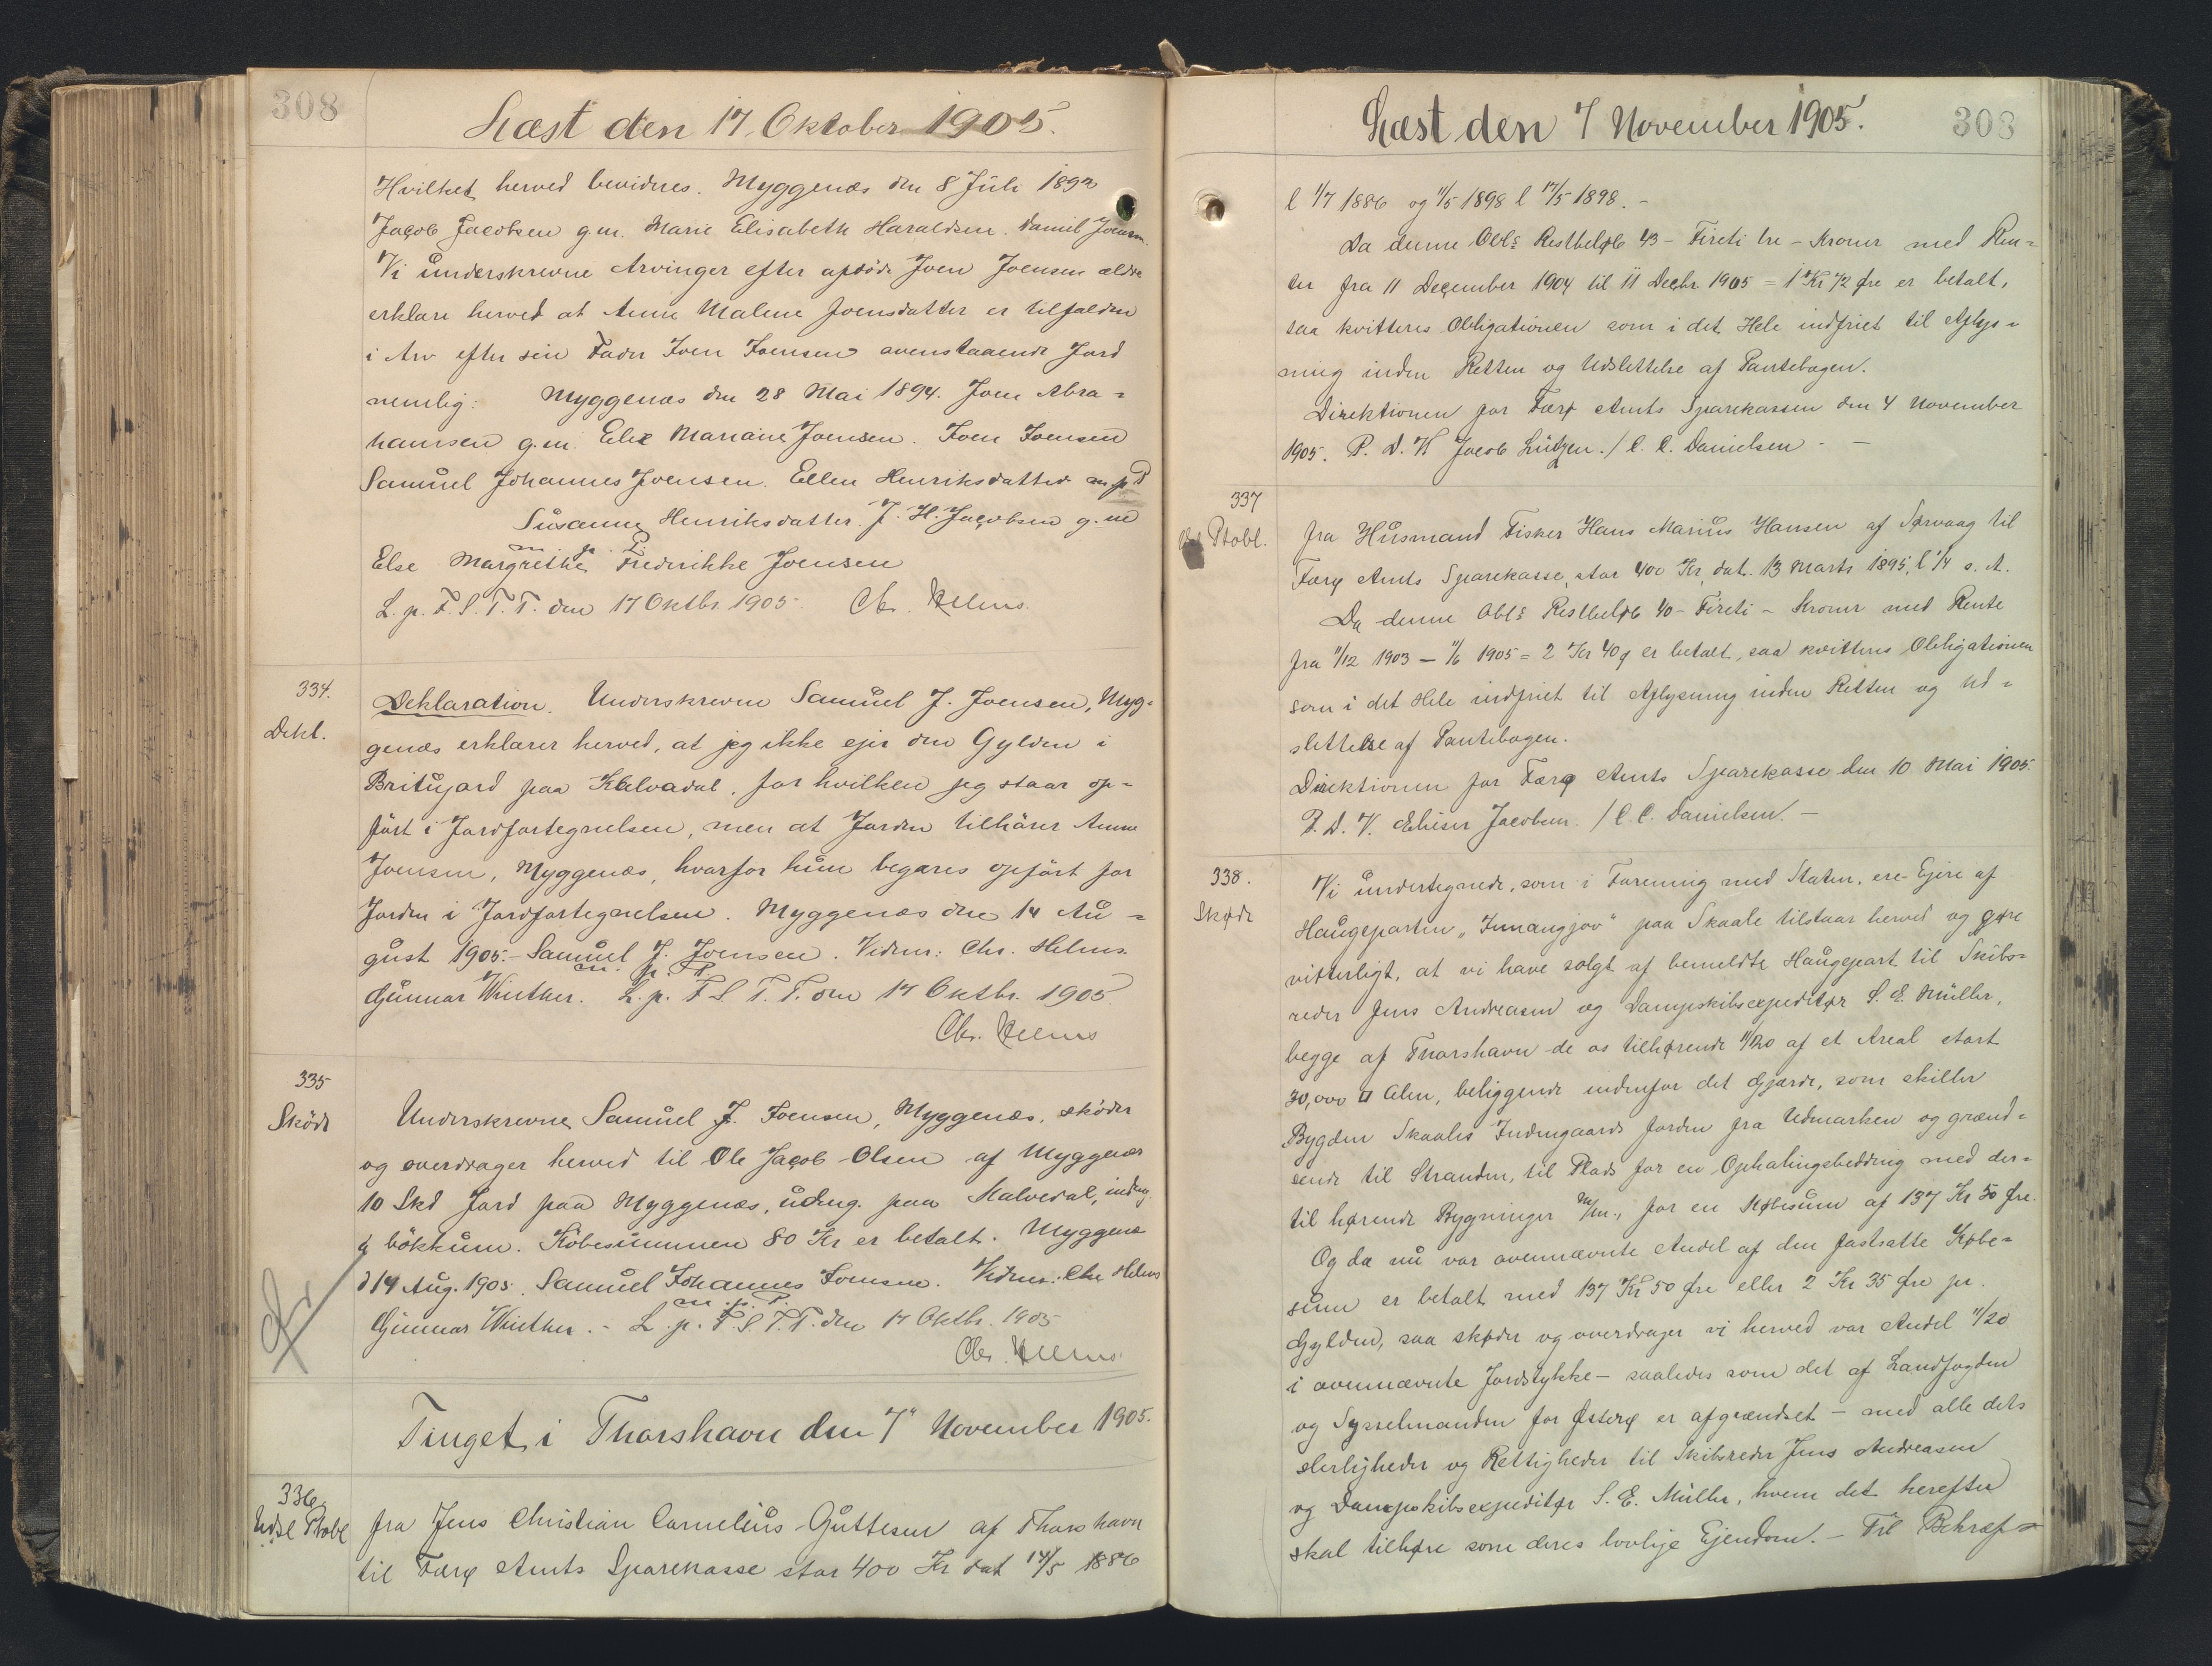 308
Læst den 17. Oktober 1905.
Hvilket herved bevidnes. Myggenæs den 8 Juli 1893
Jacob Jacobsen g.m. Marie Elisabeth Haraldsen. Daniel Joensen.
Vi underskrevne Arvinger efter afdöde Joen Joensen ældre
erklare herved at Anne Malene Joensdatter er tilfalden
i Arv efter sin Fader Joen Joensen ovenstaaende Jord
nemlig: Myggenæs den 28 Mai 1894. Joen Abra=
hamsen g.m. Else Mariane Joensen. Joen Joensen
Samuel Johannes Joensen. Ellen Henriksdatter m.p.P
Susanne Henriksdatter. J. H. Jacobsen g.m
m. p. P.
Else Margrethe Frederikke Joensen
L. p. F. S. T. T. den 17 Oktbr. 1905. Chr. Helms.
334.
Dekl.
Deklaration. Underskrevne Samuel J. Joensen, Myg=
genæs erklærer herved, at jeg ikke ejer den Gylden i
Britugard paa Kalvadal, for hvilken jeg staar op=
fört i Jordfortegnelsen, men at Jorden tilhörer Anne
Joensen, Myggenæs, hvorfor hun begæres opfört for
Jorden i Jordfortegnelsen. Myggenæs den 14 Au=
gust 1905.- Samuel J. Joensen. Vidner: Chr. Helms.
m. p. P.
Gunnar Winther. L. p. F S T. T. den 17 Oktbr. 1905.
Chr. Helms
335
Sköde
Underskrevne Samuel J. Joensen, Myggenæs, sköder
og overdrager herved til Ole Jacob Olsen af Myggenæs
10 Skd Jord paa Myggenæs, udmg. paa Kalvedal, indmg.
á bökkum. Köbesummen 80 Kr er betalt. Myggenæs
d 14 Aug. 1905. Samuel Johannes Joensen. Vidner: Chr Helms
m. p. P.
Gunnar Winther. - L. p. F. S. T. T. den 17 Oktbr. 1905
Chr. Helms.
Tinget i Thorshavn den 7" November 1905.
336.
Udsl Ptobl
fra Jens Christian Cornelius Guttesen af Thorshavn
til Færø Amts Sparekasse stor 400 Kr dat 14/5 1886
Læst den 7 November 1905.
308
l 1/7 1886 og 11/5 1898 l 17/5 1898. -
Da denne Obl's Restbeløb 43 - Fireti tre - Kroner med Ren=
ter fra 11 December 1904 til 11 Decbr 1905 = 1 Kr 72 Øre er betalt,
saa kvitteres Obligationen som i det Hele indfriet til Aflys=
ning inden Retten og Udslettelse af Pantebogen.
Direktionen for Færø Amts Sparekassen den 4 November
1905. P. D. V Jacob Lützen. / C. C. Danielsen. -
337
Ptobl.
fra Husmand Fisker Hans Marius Hansen af Sørvaag til
Færø Amts Sparekasse, stor 400 Kr, dat. 13 Marts 1895, l 1/4 s. A.
Da denne Obl's Restbeløb 40 - Fireti - Kroner med Rente
fra 11/12 1903 - 11/6 1905 = 2 Kr 40 ø er betalt, saa kvitteres Obligationen
som i det Hele indfriet til Aflysning inden Retten og Ud=
slettelse af Pantebogen.
Direktionen for Færø Amts Sparekasse den 10 Mai 1905.
P. D. V. Elieser Jacobsen. / C. C. Danielsen. -
338.
Skøde
Vi undertegnede, som i Forening med Staten, ere Ejere af
Haugeparten „Innangjov" paa Skaale tilstaar herved og gøre
vitterligt, at vi have solgt af bemeldte Haugepart til Skibs=
reder Jens Andreasen og Dampskibsexpeditør S. E. Müller,
begge af Thorshavn de os tilhørende 11/20 af et Areal stort
30,000 □ Alen, beliggende indenfor det Gjærde, som skiller
Bygden Skaales Indengaards Jorden fra Udmarken og grænd=
sende til Stranden, til Plads for en Ophalingsbedding med der=
til hørende Bygninger m/m., for en Købesum af 137 Kr 50 Øre.
Og da nu vor ovennævnte Andel af den fastsatte Købe=
sum er betalt med 137 Kr 50 Øre eller 2 Kr 35 Øre pr.
Gylden, saa skøder og overdrager vi herved vor Andel 11/20
i ovennævnte Jordstykke - saaledes som det af Landfogden
og Sysselmanden for Østerø er afgrændset - med alle dets
Herligheder og Rettigheder til Skibsreder Jens Andreasen
og Dampskibsexpeditør S. E. Müller, hvem det herefter
skal tilhøre som deres lovlige Ejendom. - Til Bekræf=